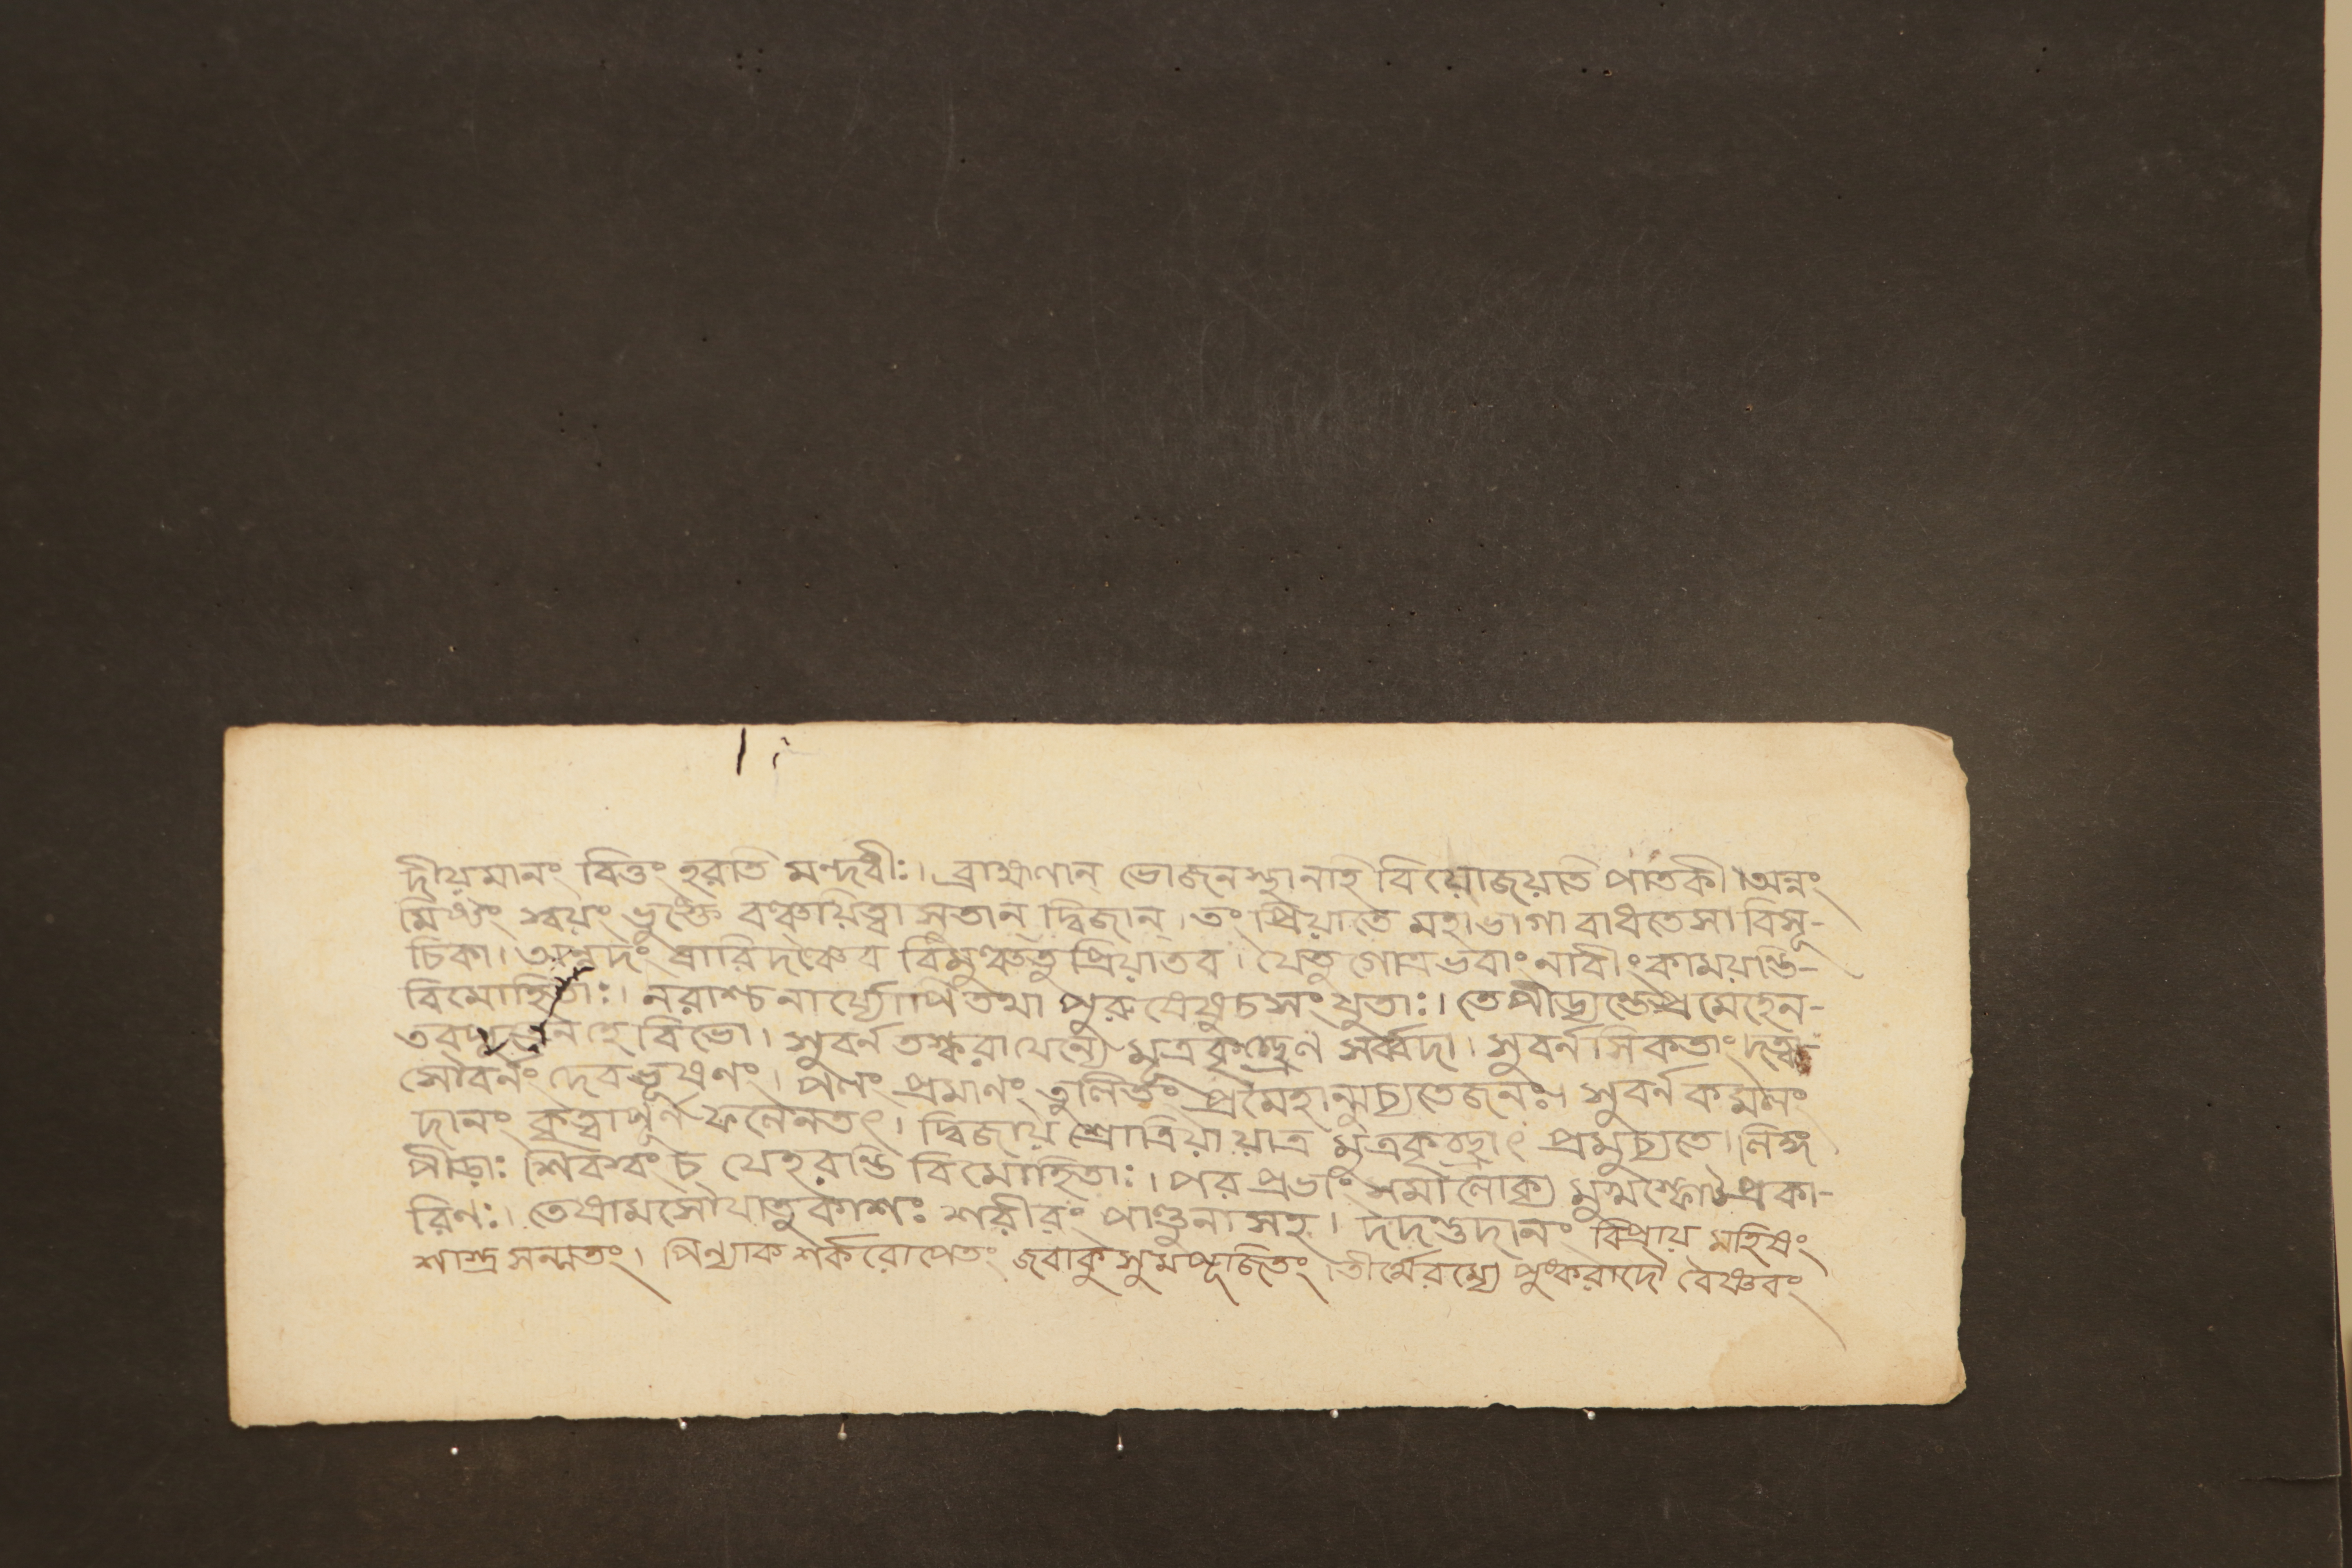 দীয়মানং বিত্তং হরতি মন্দধীঃ। ব্রাহ্মণান্ ভোজনস্থানাহি বিয়োজয়তি পাতকী। অন্নং
মিষ্টং স্বয়ং ভুঙ্ক্তে বঞ্চয়িত্বা সুতান্ দ্বিজান্। তং প্রিয়াতে মহাভাগা বাধতে সা বিসূ-
চিকা। অন্নদং বারিদঞ্চৈব বিমুঞ্চতু প্রিয়াতব। যেতু গোত্রভবাং নারীং কাময়ন্তি-
বিমোহিতাঃ। নরাশ্চ নার্য্যোপি তথা পুরুষেষু চ সংযুতাঃ। তে পীড্যন্তে প্রমেহেন-
তব হে বিভো। সুবর্ন তস্করা যেন্যে মূত্রকৃচ্ছ্রেণ সর্ব্বদা। সুবর্ন সিকতাং দত্বা-
সৌবর্নং দেবভূষণং। পলং প্রমানং তুলিতং প্রমেহান্মুচ্যতে জনঃ। সুবর্ন কমলং
দানং কৃত্বা পূর্ন ফলেনতৎ। দ্বিজায় শ্রোত্রিয়ায়াত্র মূত্রকৃচ্ছ্রাৎ প্রমুচ্যতে। লিঙ্গ
পীড়াঃ শিবস্বং চ যে হরন্তি বিমোহিতাঃ। পর প্রভাং সমালোক্য মুখ প্রকা-
রিণঃ। তে শরীরং পাণ্ডুনা সহ। দদস্তুদানং বিপ্রায় মহিষং
শাস্ত্র সম্মতং। পিন্যাক শর্করোপেতং জবাকুসুম পূজিতং। তীর্থে রম্যে পুষ্করাদৌ বৈষ্ণবং